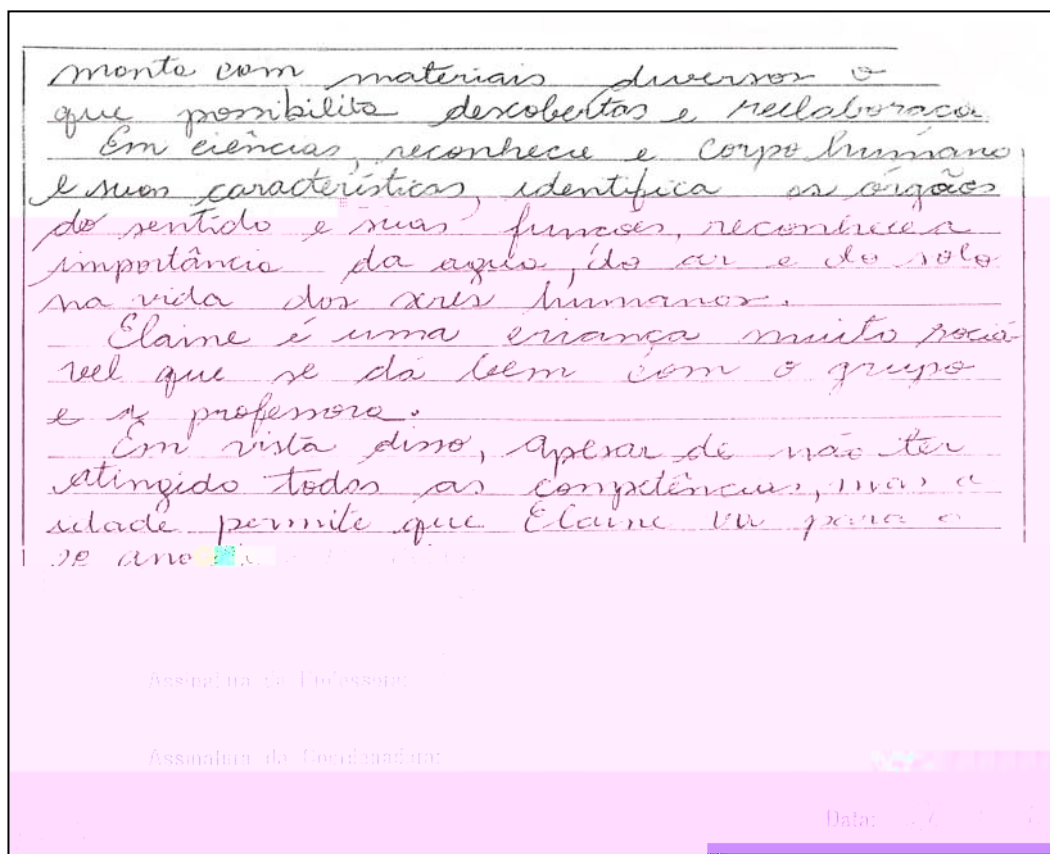 monta com materiais diversos o
que possibilita descobertas e reelaboraçao
Em ciências, reconhece e corpo humano
e suas características, identifica os órgãos
do sentido e suas funções, reconhece a
importância da agua, do ar e do solo
na vida dos seres humanos.
Elaine é uma criança muito sociá-
vel que se dá bem com o grupo
e a professora.
Em vista disso, apesar de não ter
atingido todas as competências, mas a
idade permite que Elaine vá para o
2º ano
Assinatura da Professora:
Assinatura da Coordenadora:
Data: